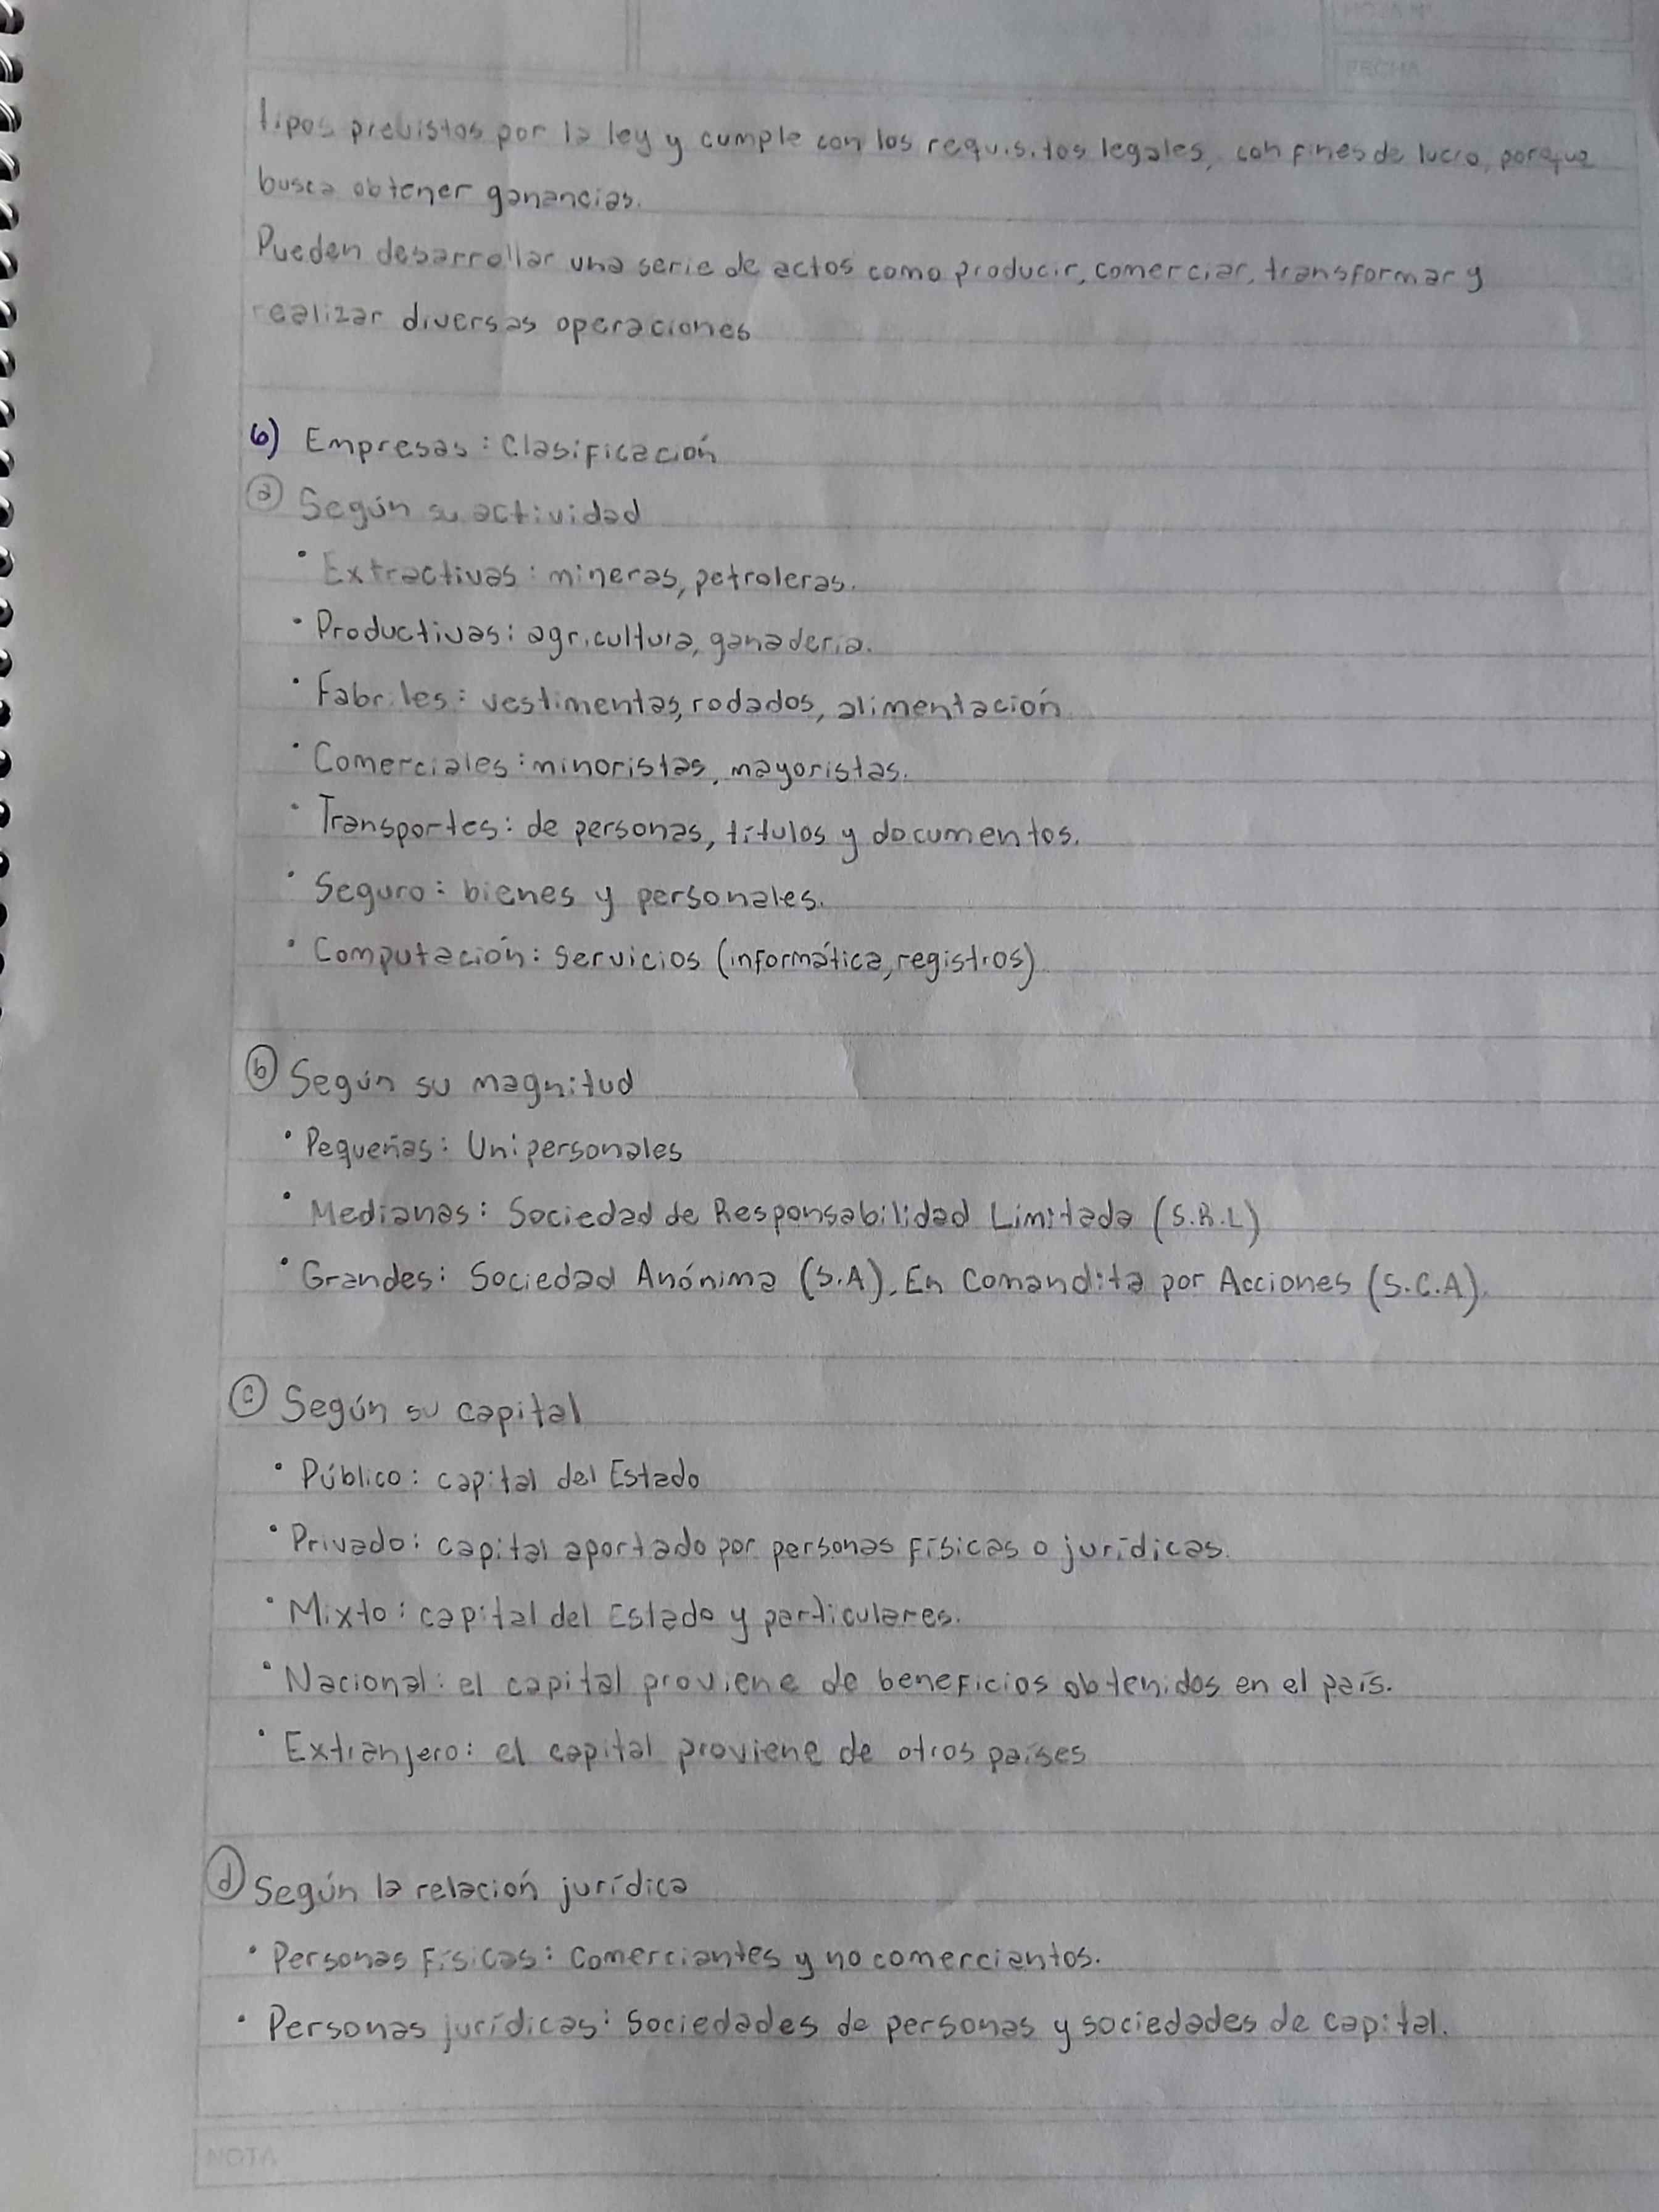 HOJA N°
FECHA
tipos previstos por la ley y cumple con los requisitos legales, con fines de lucro, porque
busca obtener ganancias.
Pueden desarrollar una serie de actos como producir, comerciar, transformar y
realizar diversas operaciones
6) Empresas: Clasificación
a Según su actividad
• Extractivas: mineras, petroleras.
• Productivas: agricultura, ganadería.
• Fabriles: vestimentas, rodados, alimentación
• Comerciales: minoristas, mayoristas.
• Transportes: de personas, títulos y documentos.
• Seguro: bienes y personales.
• Computación: Servicios (informática, registros)
b Según su magnitud
• Pequeñas: Unipersonales
• Medianas: Sociedad de Responsabilidad Limitada (S.R.L)
• Grandes: Sociedad Anónima (S.A), En Comandita por Acciones (S.C.A).
c Según su capital
• Público: capital del Estado
• Privado: capital aportado por personas físicas o jurídicas.
• Mixto: capital del Estado y particulares.
• Nacional: el capital proviene de beneficios obtenidos en el país.
• Extranjero: el capital proviene de otros países
d Según la relación jurídica
• Personas Físicas: Comerciantes y no comerciantos.
• Personas jurídicas: Sociedades de personas y sociedades de capital.
NOTA